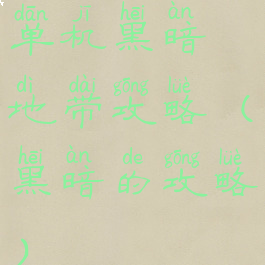 dān jī hēi àn
单机黑暗
dì dài gōng lüè
地带攻略（
hēi àn de gōng lüè
黑暗的攻略
）